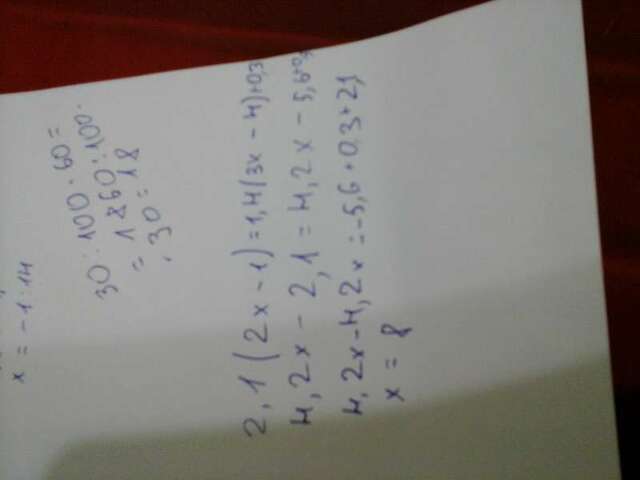 x = -1:14
30:100·60=
= 1860:100·
·30=18
2,1(2x-1)=1,4(3x-4)+0,3
4,2x-2,1=4,2x-5,6+0,3
4,2x-4,2x=-5,6+0,3+2,1
x = 8